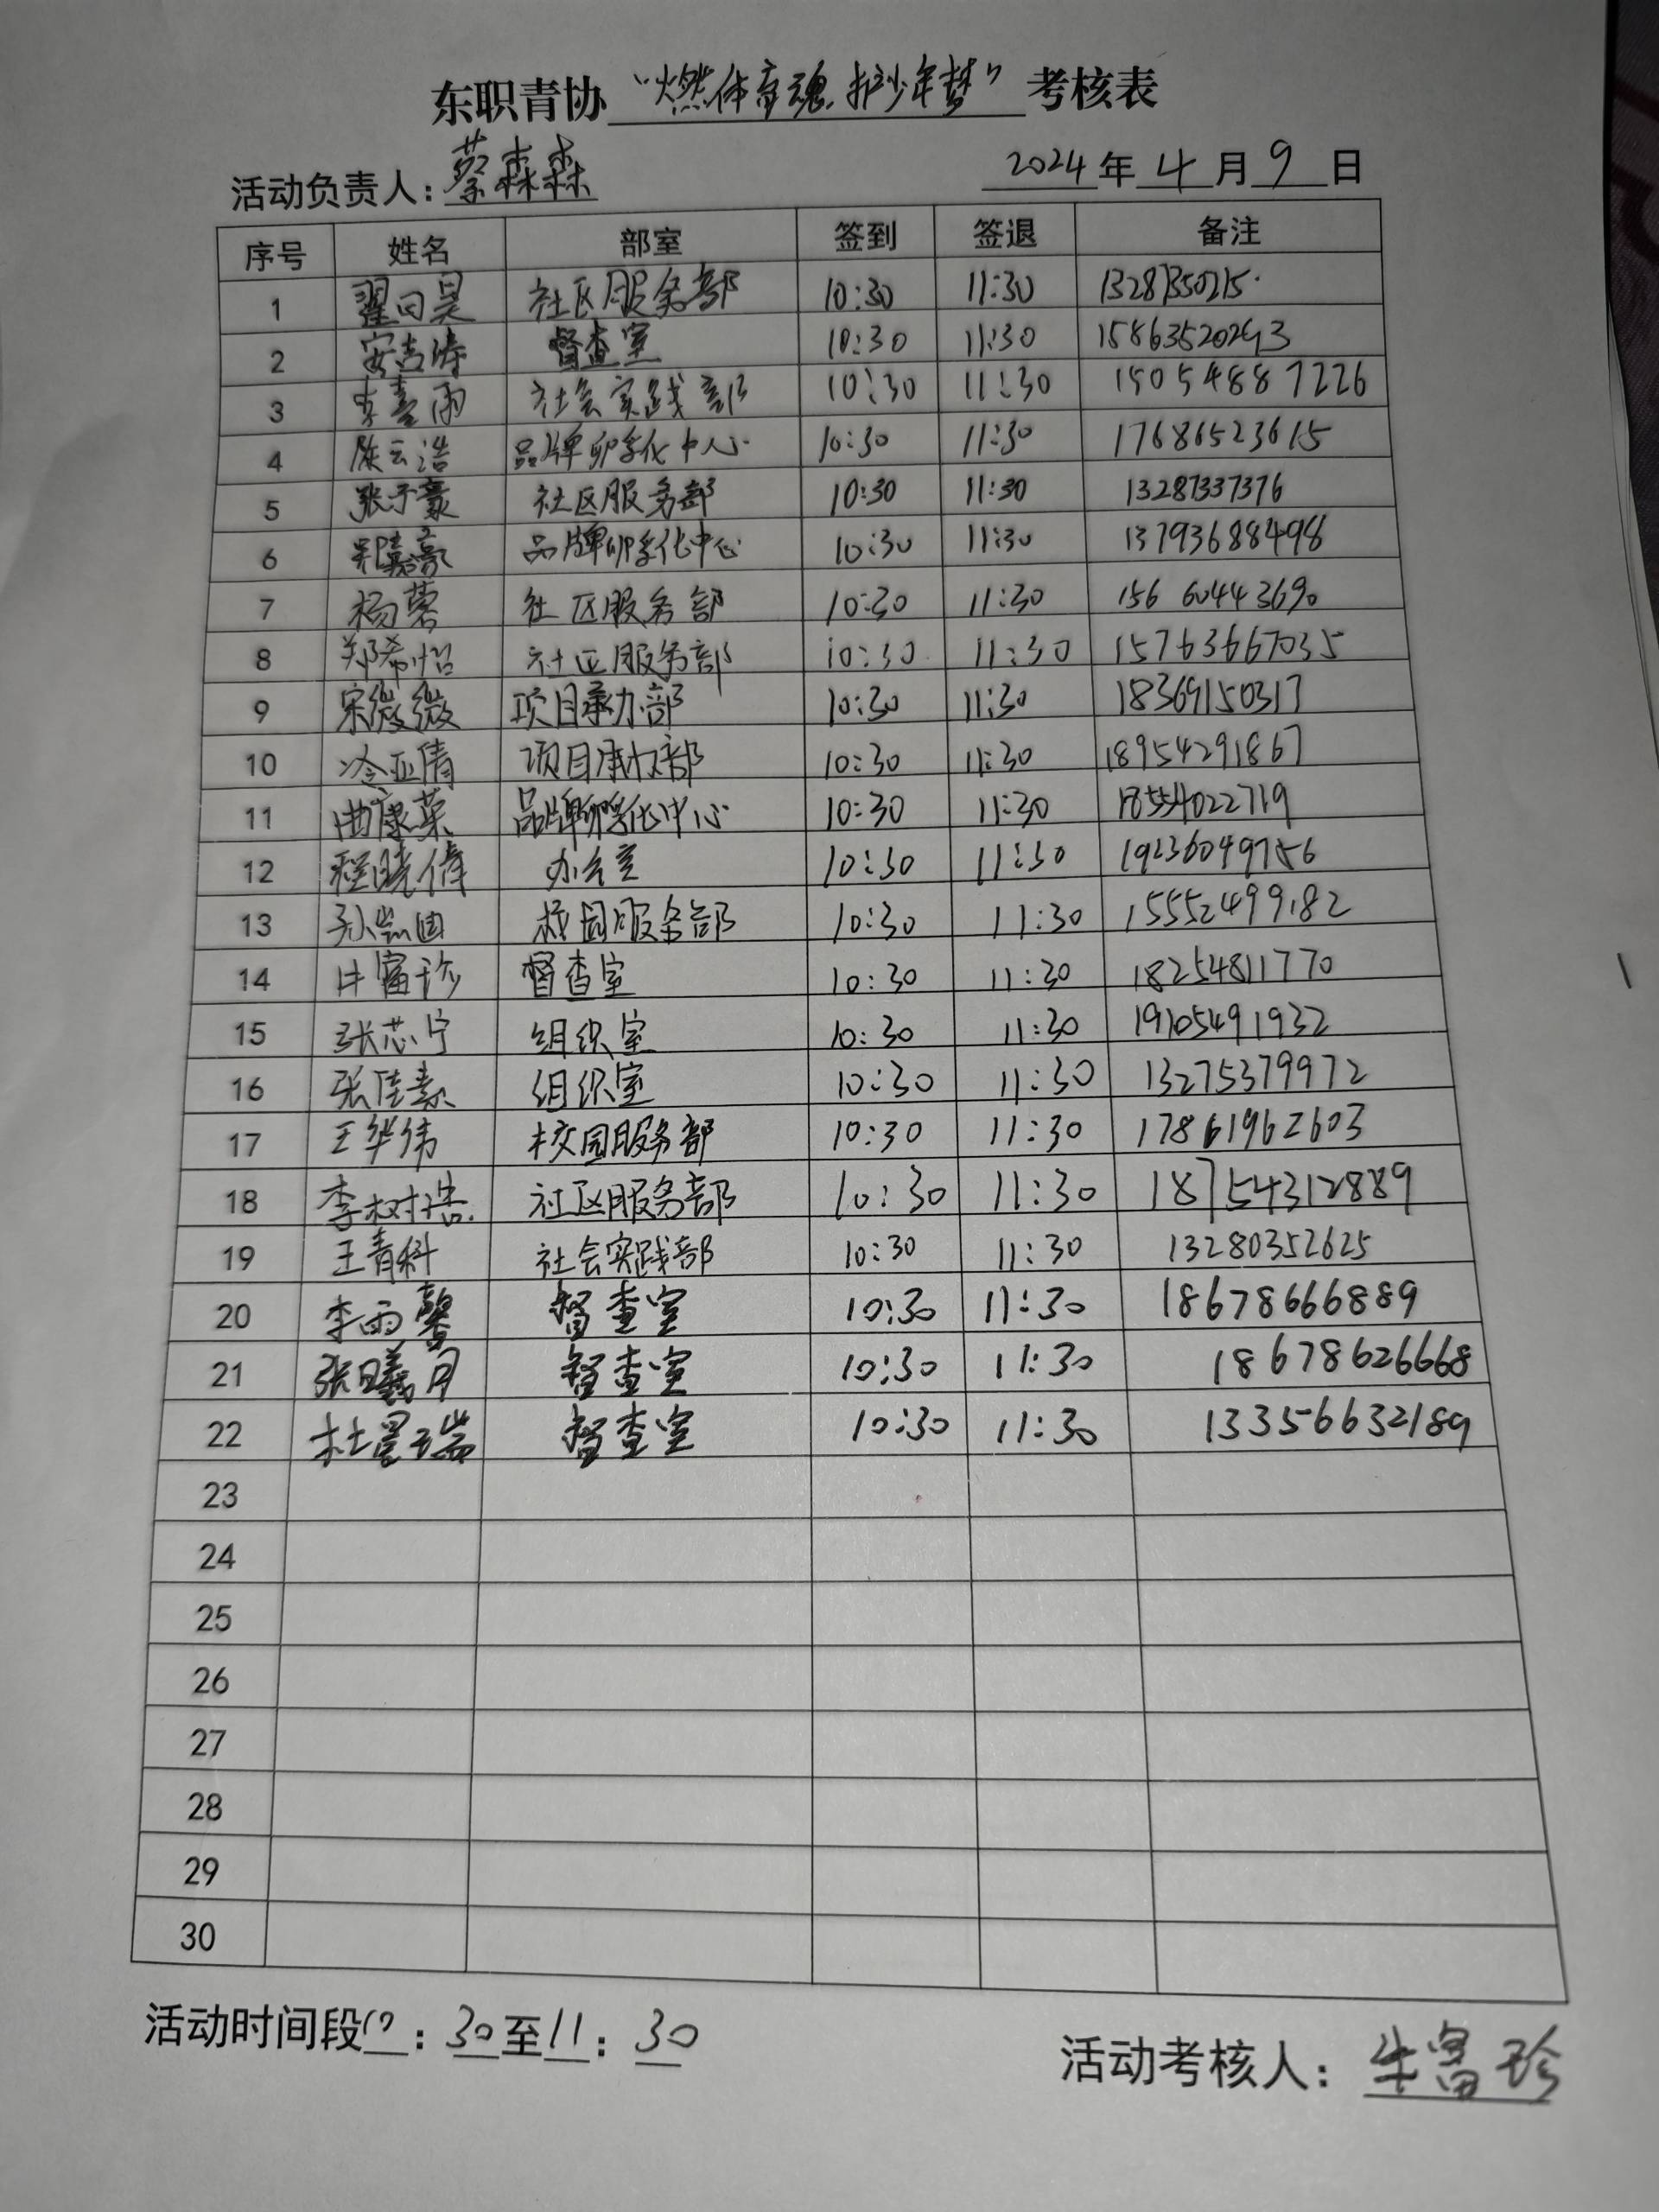 东职青协“燃体育魂,护少年梦”考核表
活动负责人:蔡森森 2024年4月9日
序号 姓名 部室 签到 签退 备注
1 翟曰昊 社区服务部 10:30 11:30 13287350215
2 安吉涛 督查室 10:30 11:30 15863520293
3 李喜雨 社会实践部 10:30 11:30 15054887226
4 陈云浩 品牌孵化中心 10:30 11:30 17686523615
5 张子豪 社区服务部 10:30 11:30 13287337376
6 品牌孵化中心 10:30 11:30 13793688498
7 杨蓉 社区服务部 10:30 11:30 15660443690
8 郑希怡 社区服务部 10:30 11:30 15763667035
9 宋微微 项目承办部 10:30 11:30 18369150317
10 冷亚倩 项目承办部 10:30 11:30 18954291867
11 曲康荣 品牌孵化中心 10:30 11:30 18554022719
12 程晓倩 办公室 10:30 11:30 19236049756
13 校园服务部 10:30 11:30 15552499182
14 牛富珍 督查室 10:30 11:30 18254811770
15 张芯宁 组织室 10:30 11:30 19105491932
16 张佳素 组织室 10:30 11:30 13275379972
17 王华伟 校园服务部 10:30 11:30 17861962603
18 李树浩 社区服务部 10:30 11:30 18754312889
19 王青科 社会实践部 10:30 11:30 13280352625
20 李雨馨 督查室 10:30 11:30 18678666889
21 张曦月 督查室 10:30 11:30 18678626668
22 杜星瑞 督查室 10:30 11:30 13356632189
23
24
25
26
27
28
29
30
活动时间段10:30至11:30
活动考核人:牛富珍